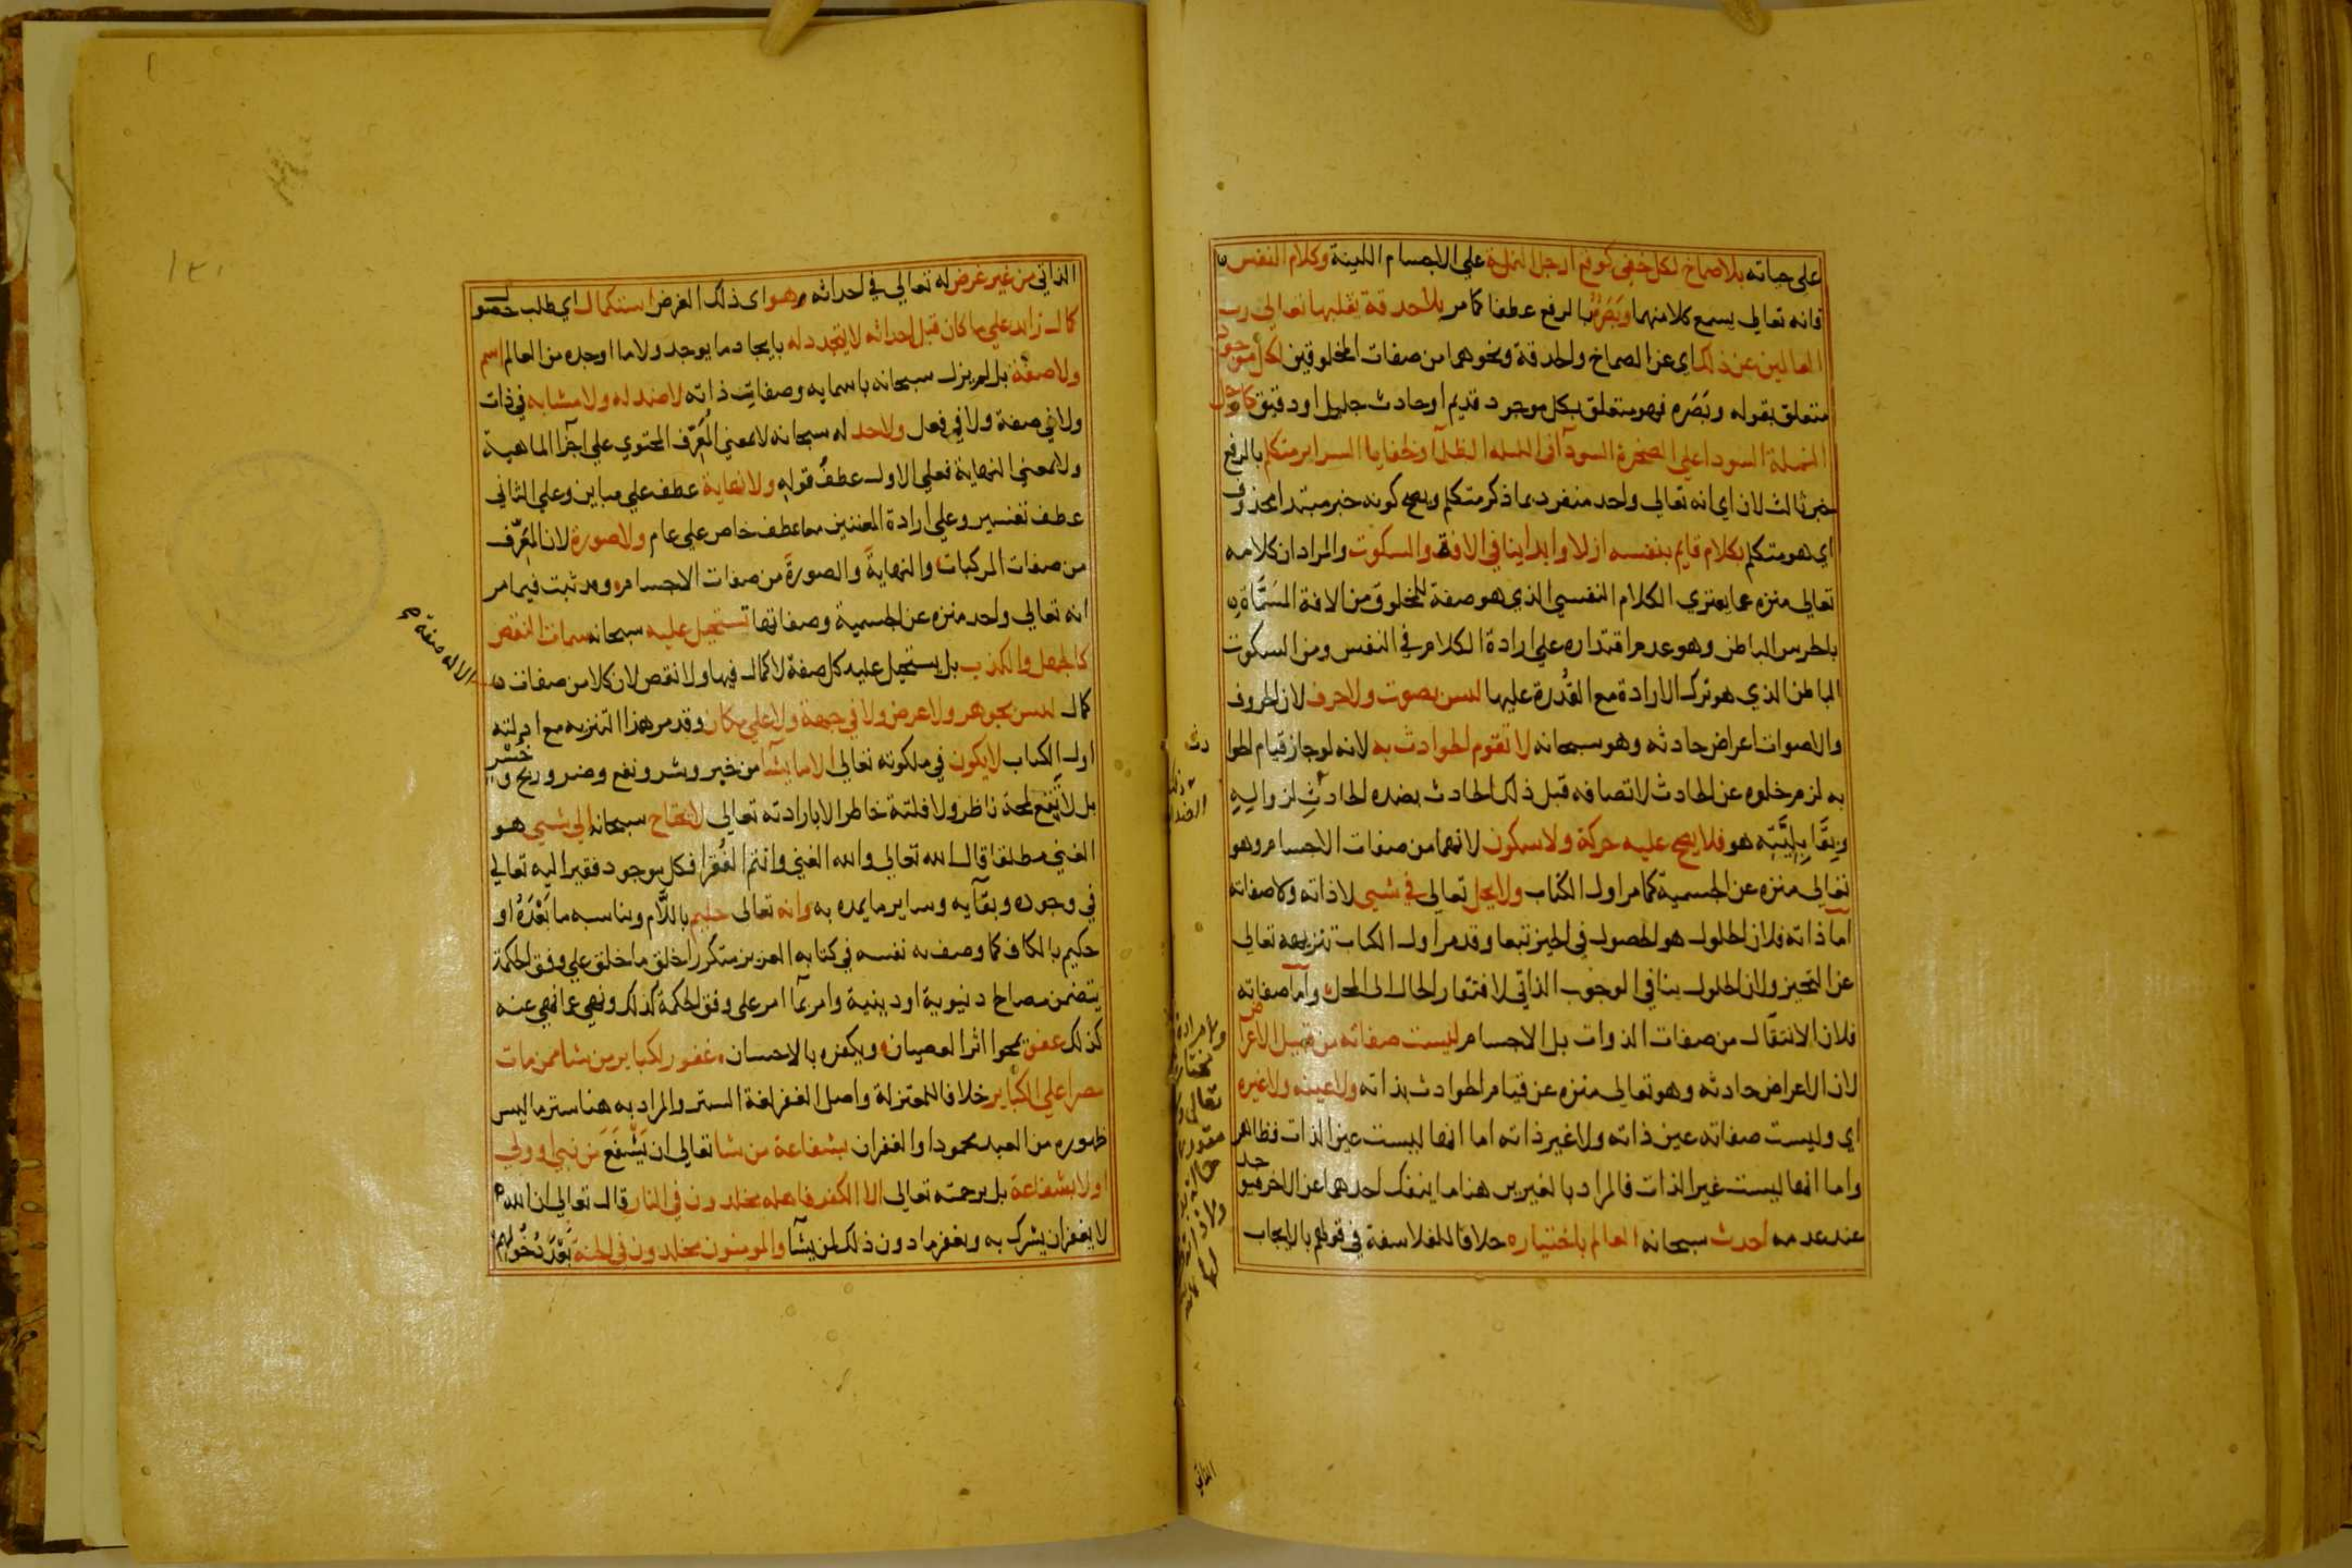 على حياته بلا صماخ لكل خفى كوقع ارجل النملة على الاجسام اللينة وكلام النفس
فانه تعالى يسمع كلا منهما وبَصَرٌ بالرفع عطفا كما مر بلا حدقة يقلبها تعالى رب
العالمين عن ذلك اى عن الصماخ والحدقة ونحوهما من صفات المخلوقين لكل موجود
متعلق بقوله وبَصَره فهو متعلق بكل موجود قديم او حادث جليل او دقيق كارجل
النملة السودا على الصخرة السودآ فى الليله الظلمآ وخفايا السراير متكلم بالرفع
خبر ثالث لان اي انه تعالي واحد منفرد بما ذكر متكلم ويصح كونه خبر مبتدا محذوف
اي هو متكلم بكلام قايم بنفسه ازلا وابدا ينافي الافة والسكوت والمراد ان كلامه
تعالى منزه عما يعتري الكلام النفسي الذي هو صفة للمخلوق من الافة المسَمَّاة
بالخرس الباطن وهو عدم اقتداره على ارادة الكلام في النفس ومن السكوت
الباطن الذي هو ترك الارادة مع القُدرة عليها ليس بصوت ولا حرف لان الحروف
والاصوات اعراض حادثه وهو سبحانه لا تقوم الحوادث به لانه لو جاز قيام الحوا دث
به لزم خلوه عن الحادث لاتصافه قبل ذلك الحادث بضده الحادثِ لزواله
هو فلا يصح عليه حركة ولا سكون لانهما من صفات الاجسام وهو
تعالى منزه عن الجسمية كما مر اول الكتاب ولا يحل تعالى في شيى لا ذاته ولا صفاته
اما ذاته فلان الحلول هو الحصول في الحيز تبعا وقد مر اول الكتاب تنزيهه تعالى
عن التحيز ولان الحلول ينافى الوجوب الذاتي لافتقار الحال الى المحل واما صفاته
فلان الانتقال من صفات الذوات بل الاجسام ليست صفاته من قبيل الاعراض
لان الاعراض حادثه وهو تعالى منزه عن قيام الحوادث بذاته ولا عينه ولا غيره
اي وليست صفاته عين ذاته ولا غير ذاته اما انها ليست عين الذات فظاهر
واما انها ليست غير الذات فالمراد بالغيرين هنا ما ينفك احدهما عن الاخر فيوجد
عند عدمه احدث سبحانه العالم باختياره خلافا للفلاسفة في قولهم بالايجاب
الذاتي
الذاتي من غير غرض له تعالي في احداثه وهو اى ذلك الغرض استكمال اي طلب حصول
كمال زايد على ما كان قبل احداثه لا يتجدد له بايجاد ما يوجد ولا ما اوجده من العالم اسم
ولا صفة بل لم يزل سبحانه باسمايه وصفات ذاته لا ضد له ولا مشابه في ذات
ولا في صفة ولا في فعل ولا حد له سبحانه لا بمعني المُعَرِّف المحتوي علي اجزآ الماهية
ولا بمعني النهاية فعلي الاول عطفُ قوله ولا نهاية عطف علي مباين وعلي الثاني
عطف تفسير وعلي ارادة المعنيين معا عطف خاص علي عام ولا صورة لان المُعَرِّف
من صفات المركبات والنهايةَ والصورةَ من صفات الاجسام وقد ثبت فيما مر
انه تعالي واحد منزه عن الجسمية وصفاتها تستحيل عليه سبحانه سمات النقص
كالجهل والكذب بل يستحيل عليه كل صفة لا كمال فيها ولا نقص لان كلا من صفات
الاله صفة
كمال ليس بجوهر ولا عرض ولا في جهة ولا علي مكان وقد مر هذا التنزيه مع ادلته
اول الكتاب لا يكون في ملكوته تعالى الا ما يشآ من خير وشر ونفع وضر وربح وخُسْر
بل لا يقع لمحة ناظر ولا فلتة خاطر الا بارادته تعالي لا يحتاج سبحانه الي شيى هو
الغني مطلقا قال الله تعالي والله الغني وانتم الفُقرا فكل موجود فقير اليه تعالي
في وجوده وبقآيه وساير ما يمده به وانه تعالى حليم باللَّام ويناسبه ما بَعْدَهُ او
حكيم بالكاف كما وصف به نفسه في كتابه العزيز متكررا خلق ما خلق علي وفق الحكمة
يتضمن مصالح دنيوية او دينية وامر بمآ امر على وفق الحكمة كذلك ونهي عما نهي عنه
كذلك عفو يمحوا اثر العصيان ويكفره بالاحسان غفور لكباير من شا ممن مات
مصرا علي الكباير خلافا للمعتزلة واصل الغفر لغة الستر والمراد به هنا ستر ما ليس
ظهوره من العبد محمودا والغفران بشفاعة من شا تعالى ان يَشْفَعَ من نبي او ولي
او لا بشفاعة بل برحمته تعالى الا الكفر فاهله مخلدون في النار قال تعالي ان الله
لا يغفر ان يشرك به ويغفر ما دون ذلك لمن يشآ والمومنون مخلدون في الجنة بَعْدَ دُخُولهم